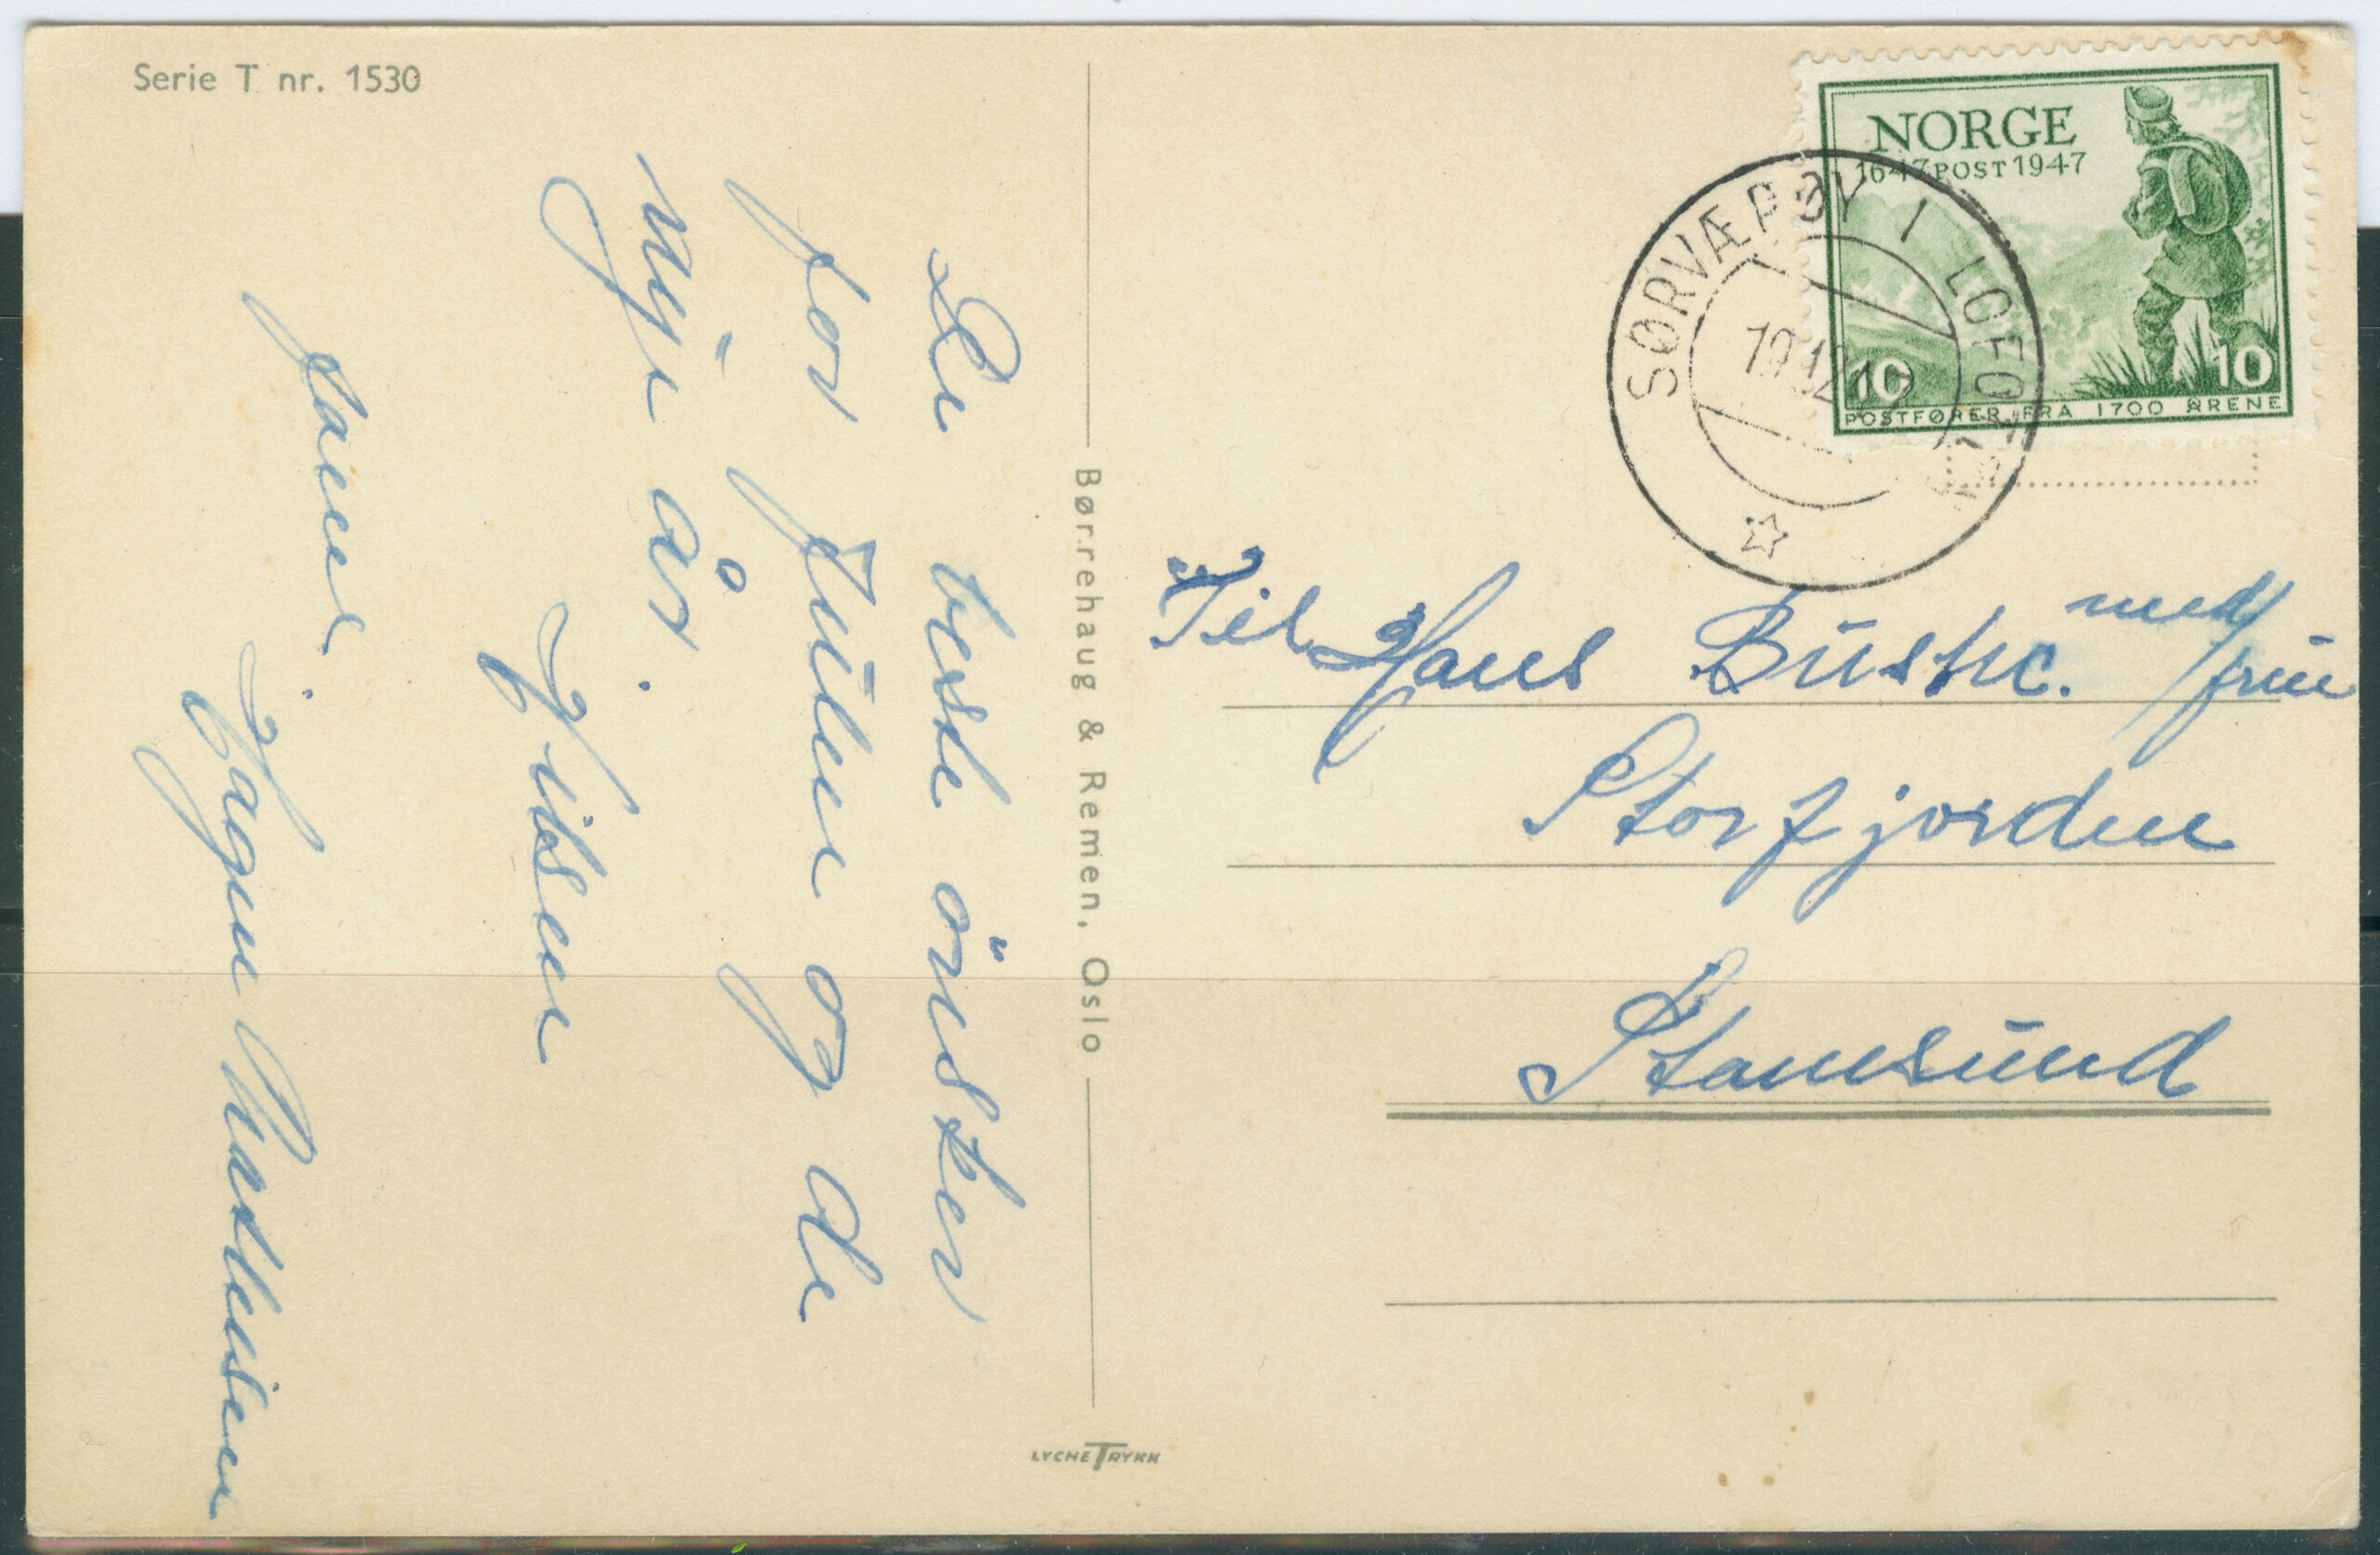 Serie T nr. 1530
De beste önsker
for Julen og de
nye år.
Hilsen
Hagine
Børrehaug & Remen, Oslo
LYCHE TRYKK
NORGE
1647 POST 1947
10 10
POSTFØRER FRA 1700 ÅRENE
SØRVÆRØY I LOFOTEN
19.12.47
Til Hans
med
frue
Storfjorden
Stamsund